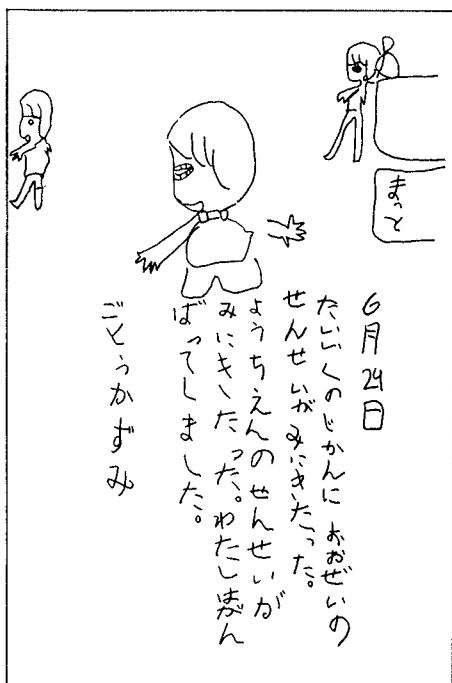 まっと
6月24日
たいいくのじかんに おおぜいの
せんせいがみにきたった。
ようちえんのせんせいが
みにきたった。わたしはがん
ばってしました。
ごとうかずみ